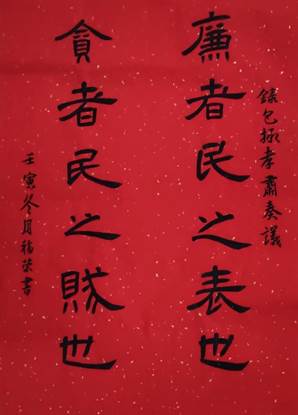 錄包拯孝肅奏議
廉者民之表也
貪者民之賊也
壬寅冬月福榮書